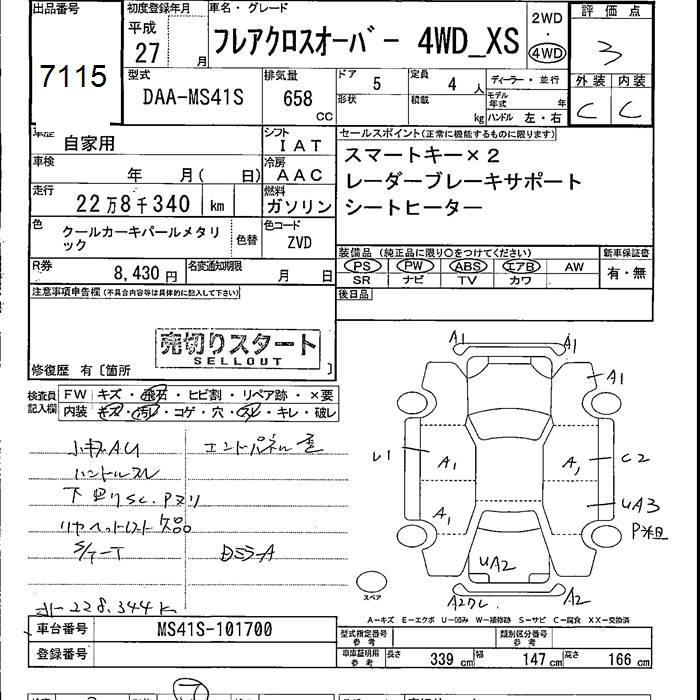 出品番号
7115
初度登録年月
平成
27 月
車名・グレード
フレアクロスオーバー 4WD_XS
2WD
・
4WD
評価点
3
型式
DAA-MS41S
排気量
658 CC
ドア 5
定員 4 人
形状
積載 kg
ディーラー・並行
モデル年式 年
ハンドル 左・右
外装 内装
C C
自家用
シフト
IAT
車検
年 月( 日)
冷房
AAC
走行
22万8千340 km
燃料
ガソリン
色
クールカーキパールメタリック
色替
色コード
ZVD
R券
8,430円
名変通知期限
月 日
セールスポイント(正常に機能するものに限ります)
スマートキー×2
レーダーブレーキサポート
シートヒーター
装備品 (純正品に限り〇をつけてください)
PS PW ABS エアB AW
SR ナビ TV カワ
新車保証書
有・無
後日品
注意事項申告欄(不具合内容等は具体的に記入して下さい)
売切りスタート
SELLOUT
修復歴 有〔箇所 〕
検査員記入欄
FW キズ・飛石・ヒビ割・リペア跡・×要
内装 キズ・汚れ・コゲ・穴・スレ・キレ・破レ
小キズAU
エンドパネル歪
ハンドルスレ
下廻りSC.Pヌリ
リヤヘッドレスト欠品
DミラーA
228,344k
A1
A1
A1
レ1
A1
A1
A1
C2
UA3
P粗
UA2
A2クレ
A2
スペア
A-キズ E-エクボ U-凹み W-補修跡 S-サビ C-腐食 XX-交換済
車台番号
MS41S-101700
登録番号
型式指定番号
参考
類別区分番号
参考
車庫証明用
参考
長さ 339 cm
幅 147 cm
高さ 166 cm